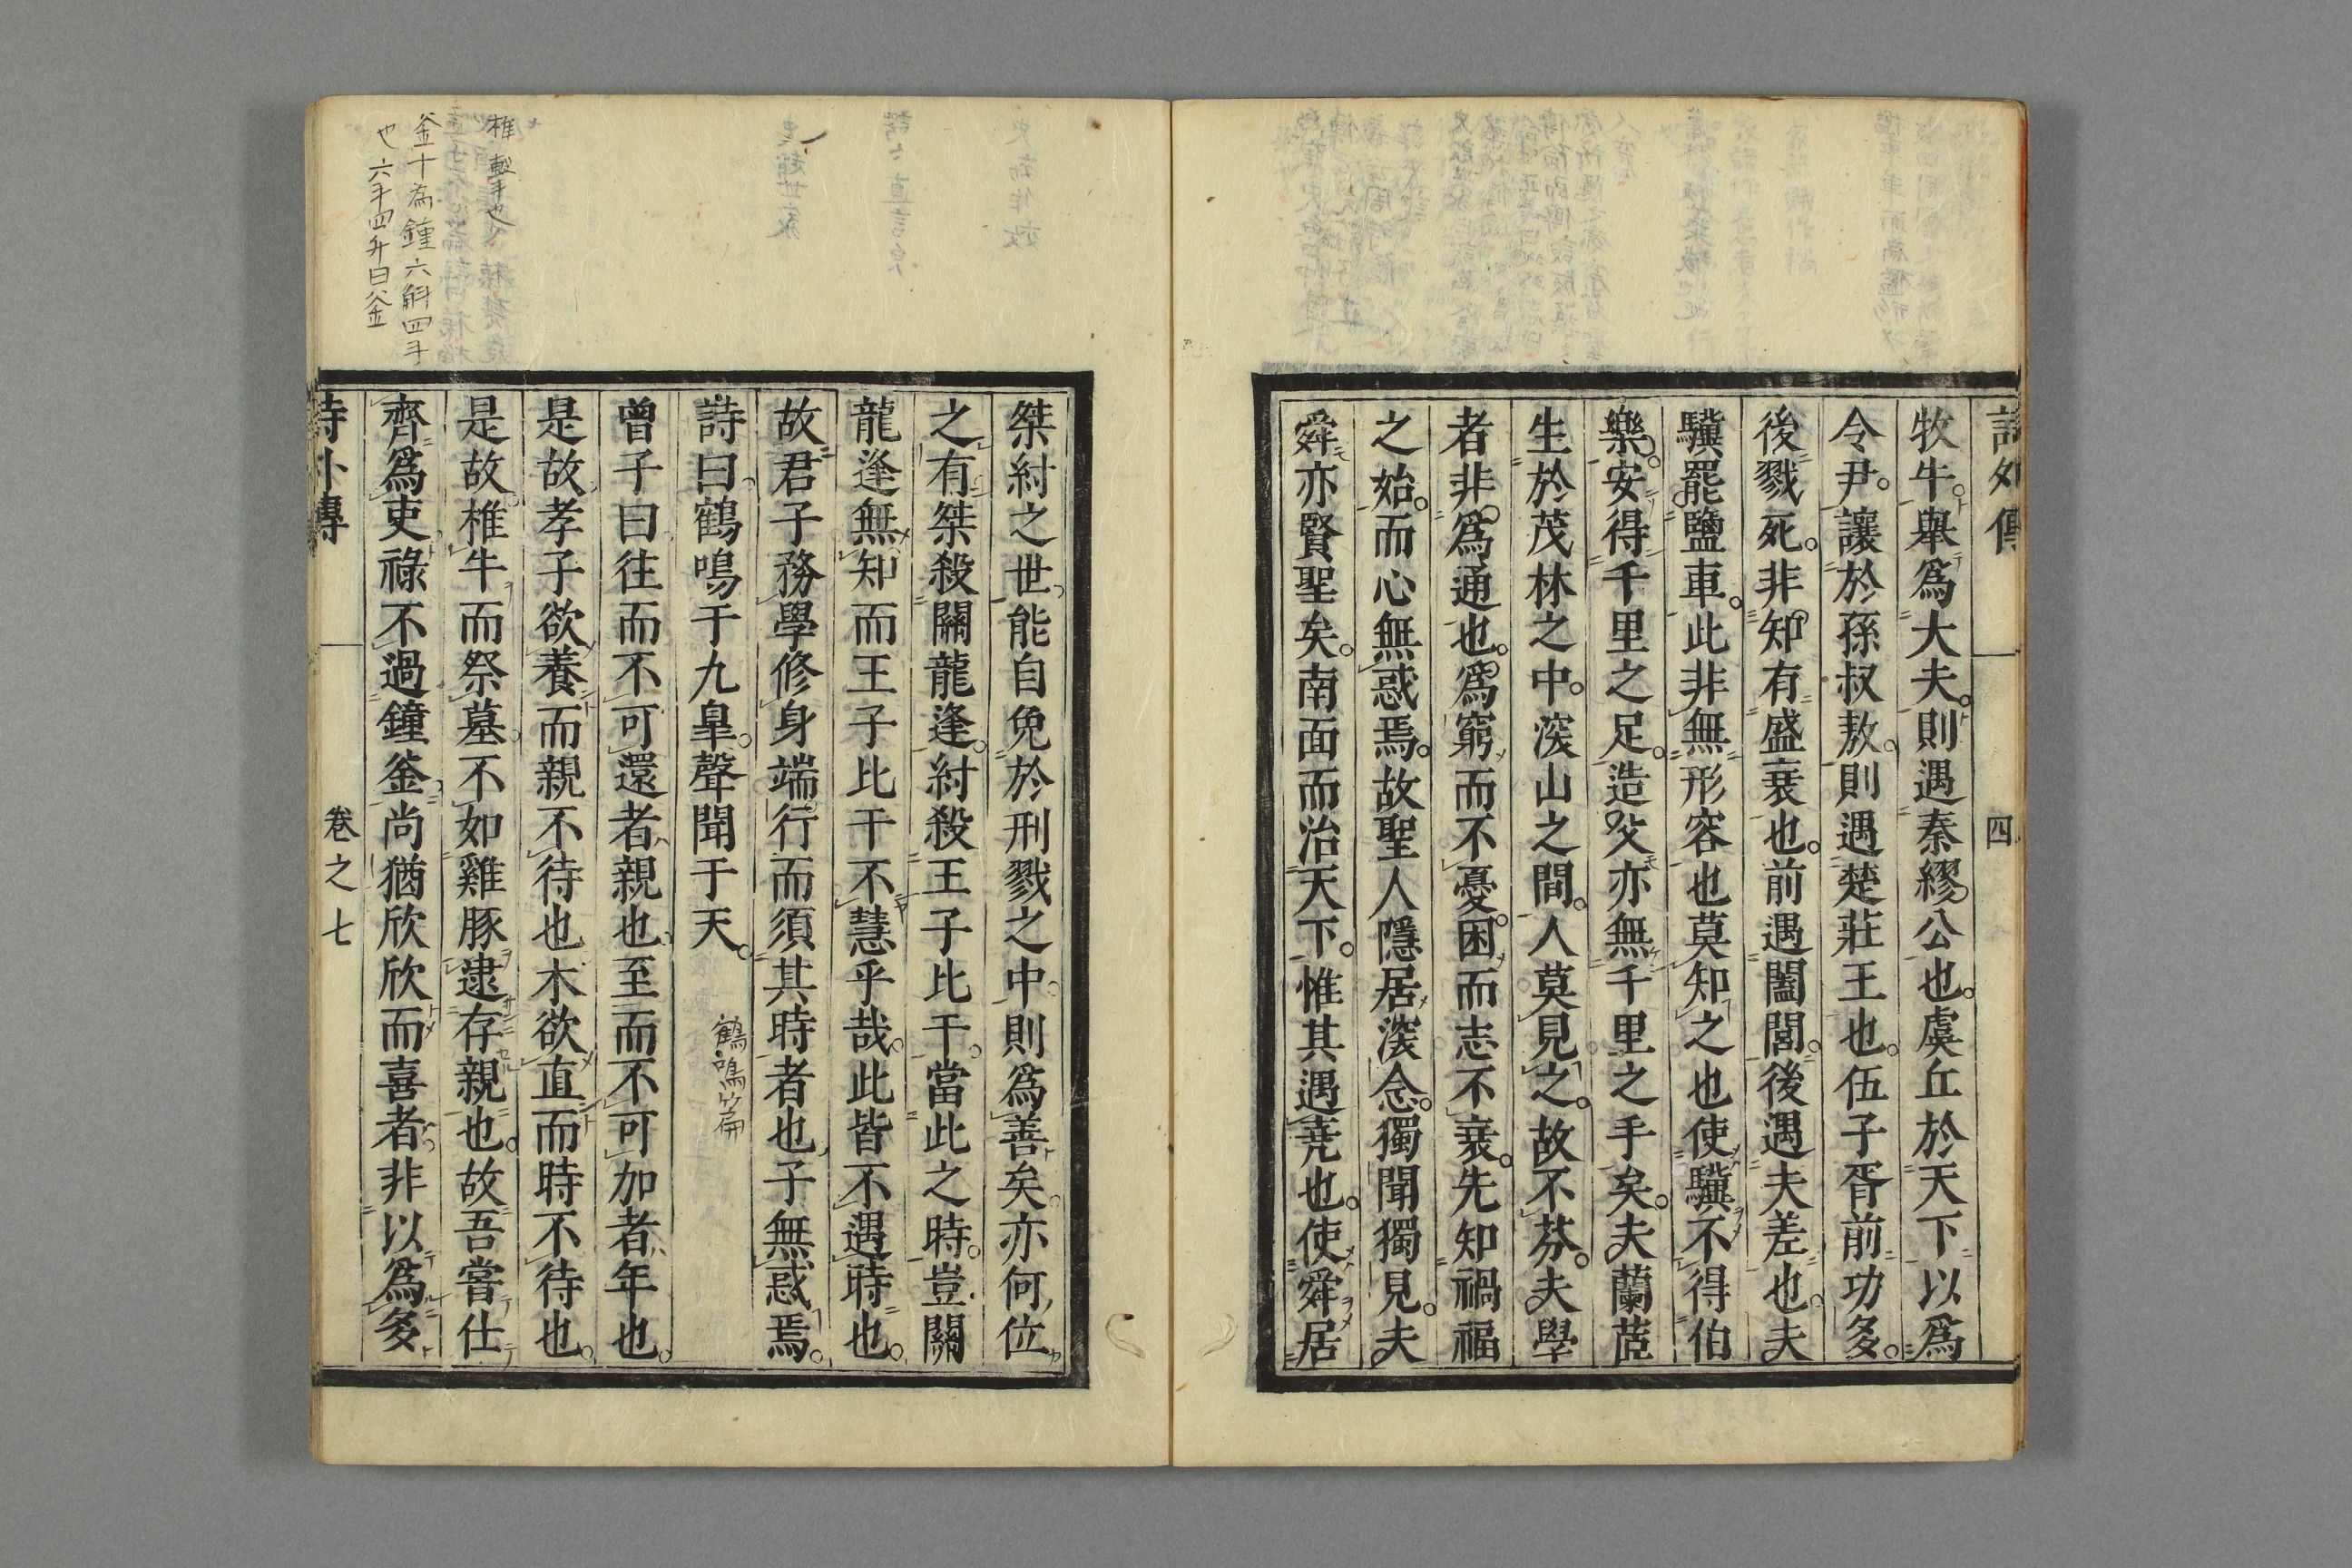 四
牧牛。舉爲大夫。則遇秦繆公也。虞丘於天下以爲
令尹。讓於孫叔敖。則遇楚莊王也。伍子胥前功多。
後戮死。非知有盛衰也。前遇闔閭。後遇夫差也。夫
驥罷鹽車。此非無形容也莫知之也使驥不得伯
樂。安得千里之足。造父亦無千里之手矣。夫蘭茝
生於茂林之中。深山之間。人莫見之。故不芬。夫學
者非。爲通也。爲窮而不憂。困而志不衰。先知禍福
之始。而心無惑焉。故聖人隱居深念。獨聞獨見。夫
舜亦賢聖矣。南面而治天下。惟其遇堯也。使舜居
桀紂之世。能自免於刑戮之中。則爲善矣。亦何位
之有桀殺關龍逢。紂殺王子比干。當此之時。豈關
龍逢無知而王子比干不慧乎哉。此皆不遇時也。
故君子務學修身端行而須其時者也。子無惑焉。
詩曰。鶴鳴于九臯。聲聞于天。
鶴鳴篇
曾子曰往而不可還者。親也。至而不可加者。年也。
是故孝子欲養而親不待也木欲直而時不待也。
是故椎牛而祭墓。不如雞豚逮存親也。故吾嘗仕
齊爲吏。祿不過鐘釜。尚猶欣欣而喜者。非以爲多
詩外傳
卷之七
釜十為鍾六斛四斗
也六斗四升曰釜